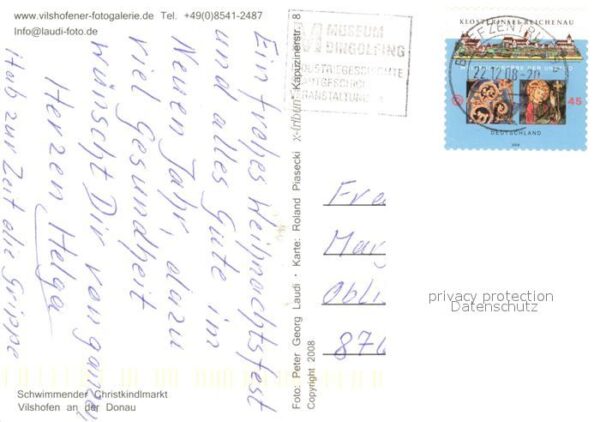 www.vilshofener-fotogalerie.de Tel. +49(0)8541-2487
Info@laudi-foto.de
Ein frohes Weihnachtsfest
und alles Gute im
Neuen Jahr, dazu
viel Gesundheit
wünscht Dir von ganzem
Herzen Helga
Hab zur Zeit die Grippe
Schwimmender Christkindlmarkt
Vilshofen an der Donau
Foto: Peter Georg Laudi · Karte: Roland Piasecki x-libum Kapuzinerstr. 8
Copyright 2008
MUSEUM
DINGOLFING
INDUSTRIEGESCHICHTE
STADTGESCHICHTE
VERANSTALTUNGEN
KLOSTERINSEL REICHENAU
BRIEFZENTRUM
22.12.08-20
45
DEUTSCHLAND
2008
Fre
Mar
Obli
privacy protection
Datenschutz